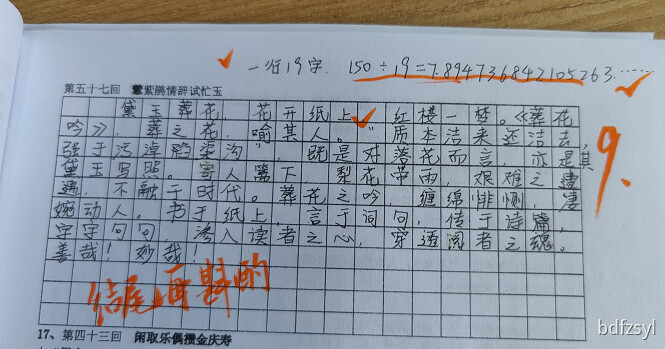 一行19字. 150÷19=7.894736842105263......
第五十七回 慧紫鹃情辞试忙玉
黛玉葬花，花开纸上，红楼一梦。《葬花
吟》，葬之花，喻其人。"质本洁来还洁去，
强于污淖陷渠沟"，既是对落花而言，亦是其
黛玉写照。寄人篱下，梨花带雨，艰难之遭
遇，不融于时代。葬花之吟，缠绵悱恻，凄
婉动人。书于纸上，言于词句，传于诗篇，
字字句句，渗入读者之心，穿透阅者之魂。
善哉！妙哉！
9.
结尾再斟酌
17、第四十三回 闲取乐偶攒金庆寿
bdfzsyl